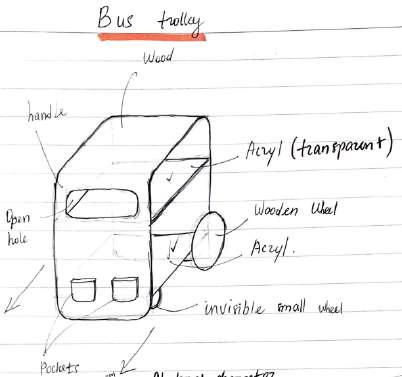 Bus trolley
Wood
handle
Acryl (transparent)
Open
hole
Wooden Wheel
Acryl.
invisible small wheel
Pockets